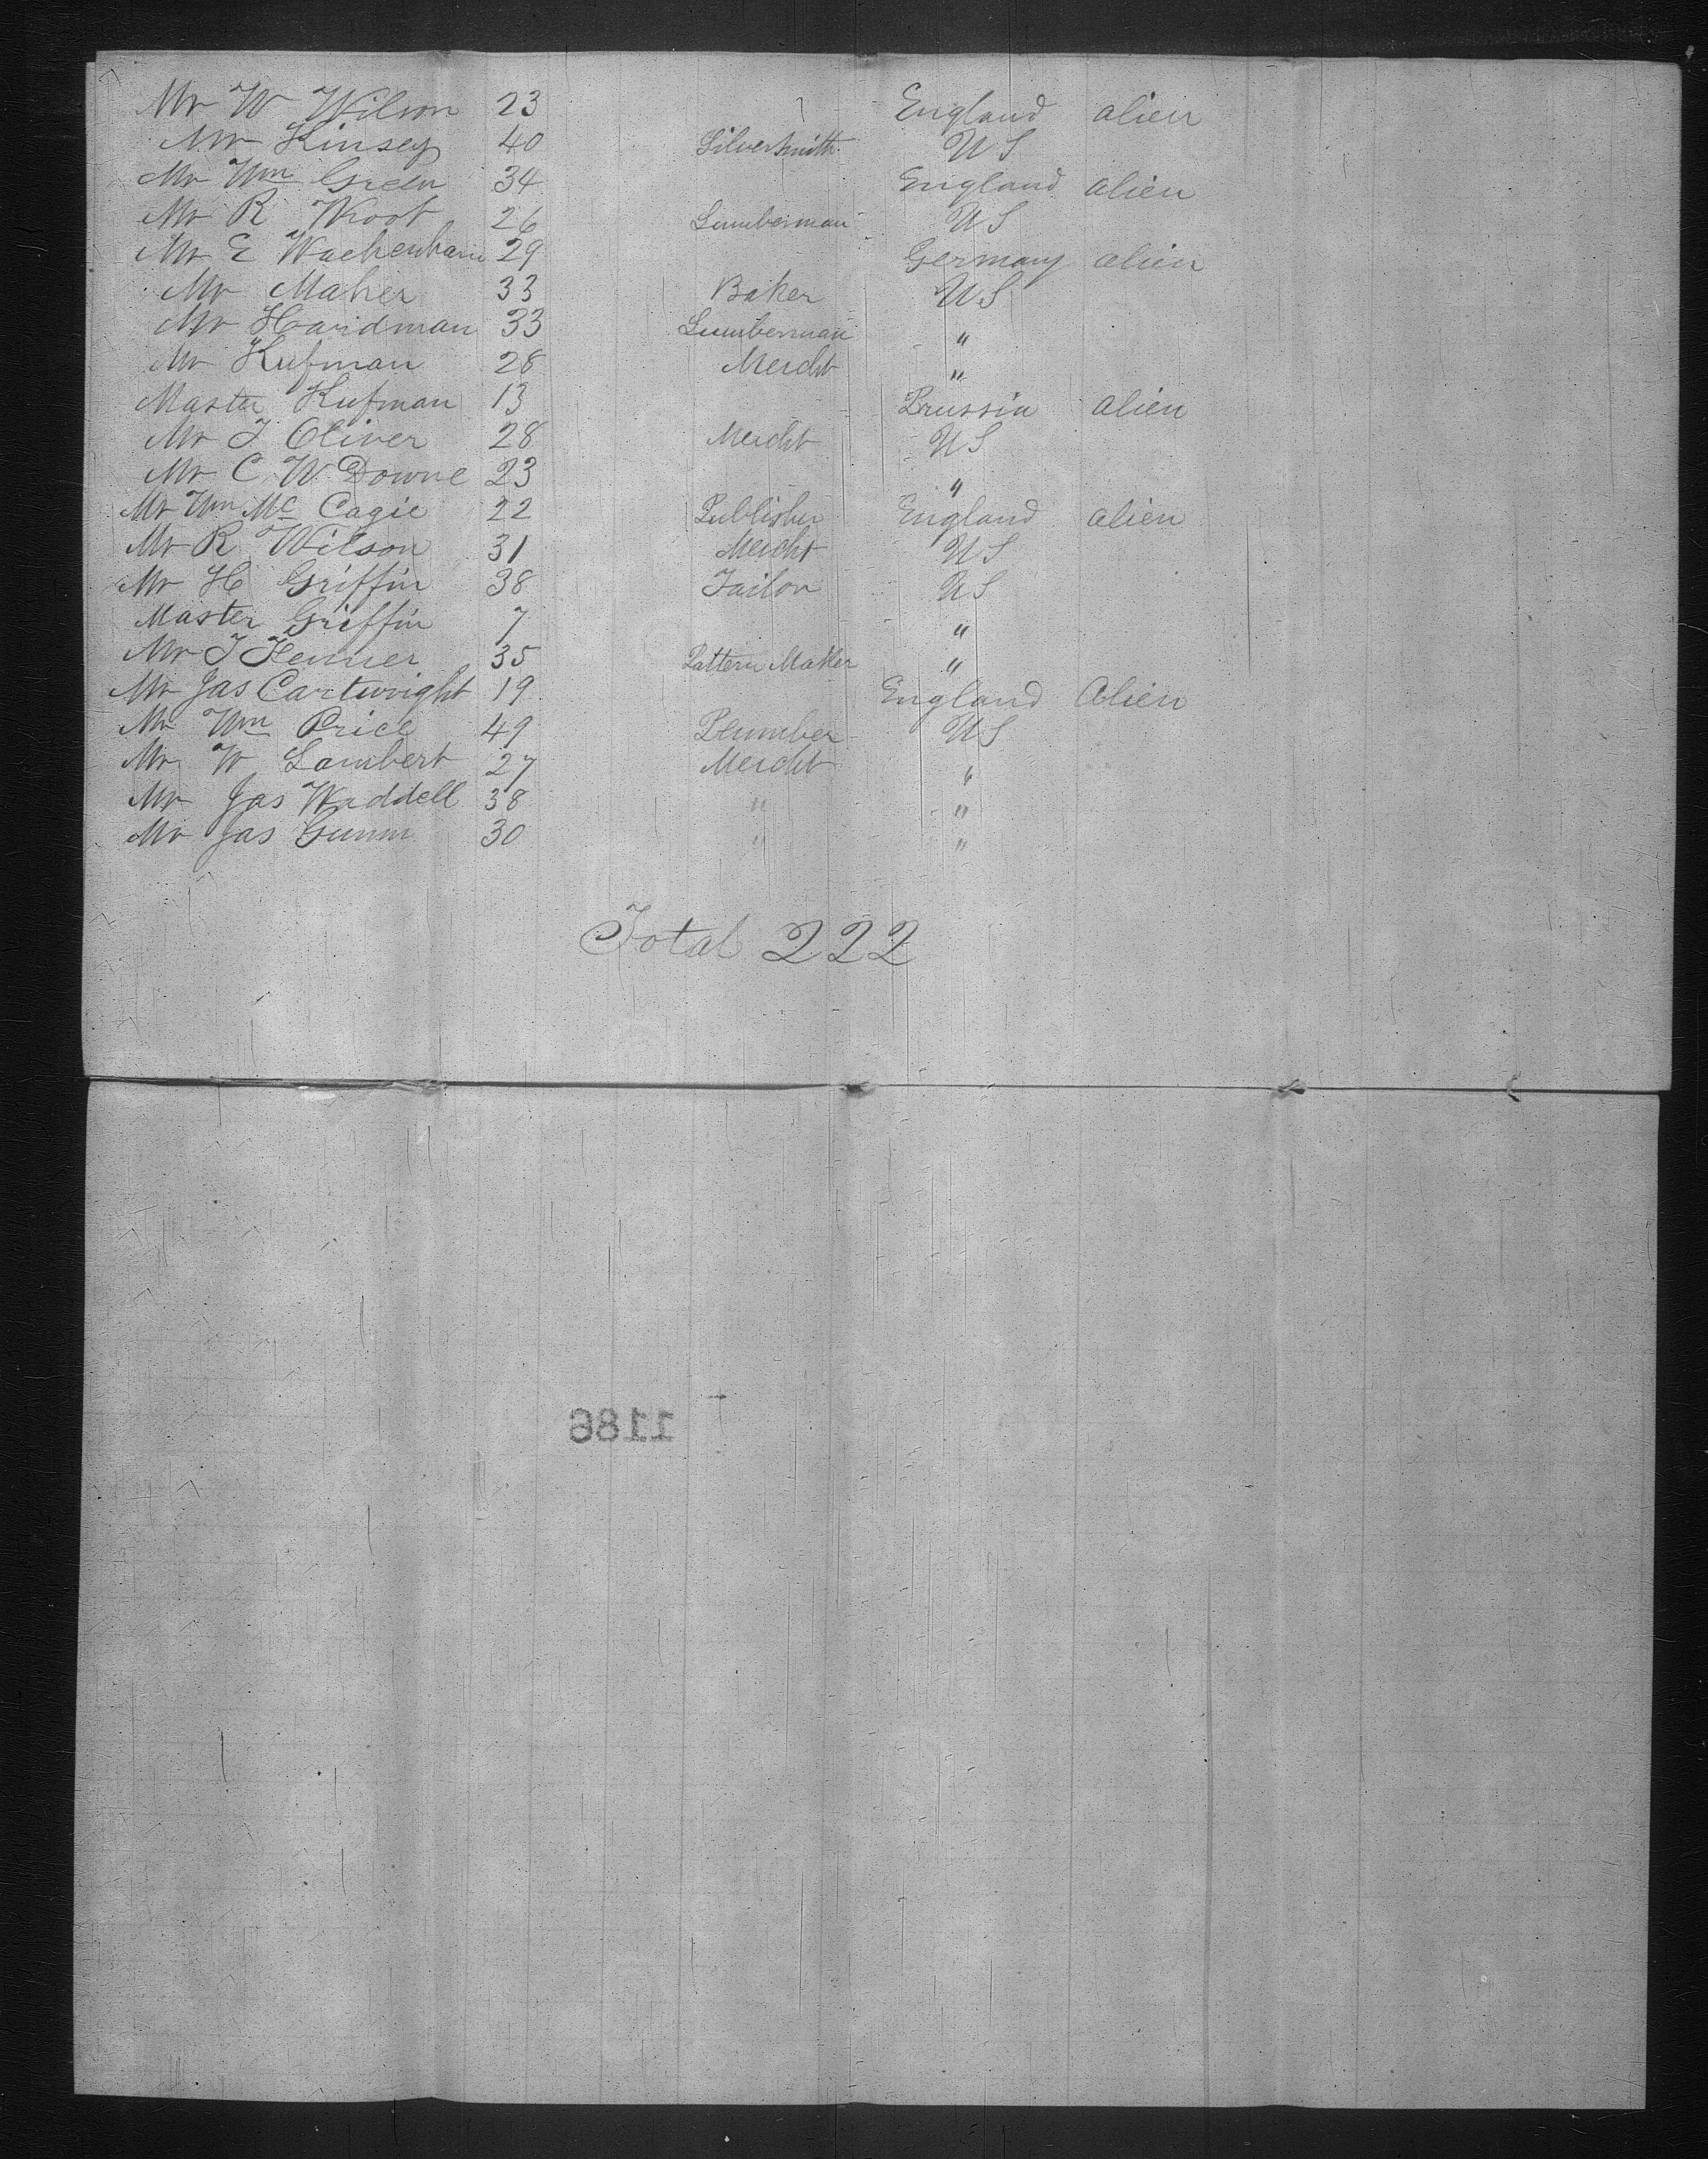 Mr W Wilson 23 England alien
Mr Kinsey 40 Silversmith U S
Mr Wm Green 34 England alien
Mr R Wroot 26 Lumberman U S
Mr E 29 Germany alien
Mr Maher 33 Baker U S
Mr Hardman 33 Lumberman "
Mr Kufman 28 Mercht "
Master Kufman 13 Prussia alien
Mr J Oliver 28 Mercht U S
Mr C W Downe 23 "
Mr Wm Mc Cagie 22 Publisher England alien
Mr R Wilson 31 Mercht U S
Mr H Griffin 38 Tailor U S
Master Griffin 7 "
Mr J 35 Pattern Maker "
Mr Jas Cartwright 19 England Alien
Mr Wm Price 49 Plumber U S
Mr W Lambert 27 Mercht "
Mr Jas Waddell 38 " "
Mr Jas Gunn 30 " "
Total 222
1186